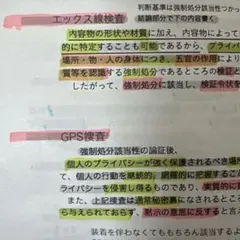 判断基準は強制処分該当性つかっ
エックス線検査
結論部分で下の内容書く
内容物の形状や材質に加え、内容物によって
的に特定することも可能であるから、プライバ
場所・物・人の身体につき、五官の作用により
質等を認識する強制処分であるところの検証と
したがって、強制処分に該当し、検証令状を
GPS捜査
強制処分該当性の論証後、
個人のプライバシーが強く保護されるべき場
して、個人の行動を継続的、網羅的に把握する
ライバシーを侵害し得るものであり、実質的に
また、上記捜査は通常秘密裏になされると
ら与えられておらず、黙示の意思に反すると言
装着を伴わなくても同様に該当する